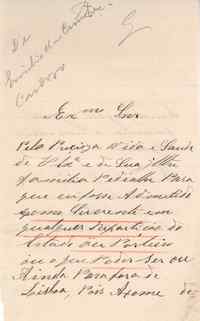 De
Cardoso
Exmo Snr
Pela Preciza Vida e Saude
de V. Exa e de Sua Illma
familia Pesso lhe Para
que eu fosse Admetido
como Servente em
qualquer Repartição do
Estado ou Porteiro
ou o que Poder Ser ou
Ainda Para fora de
Lisboa, Pois